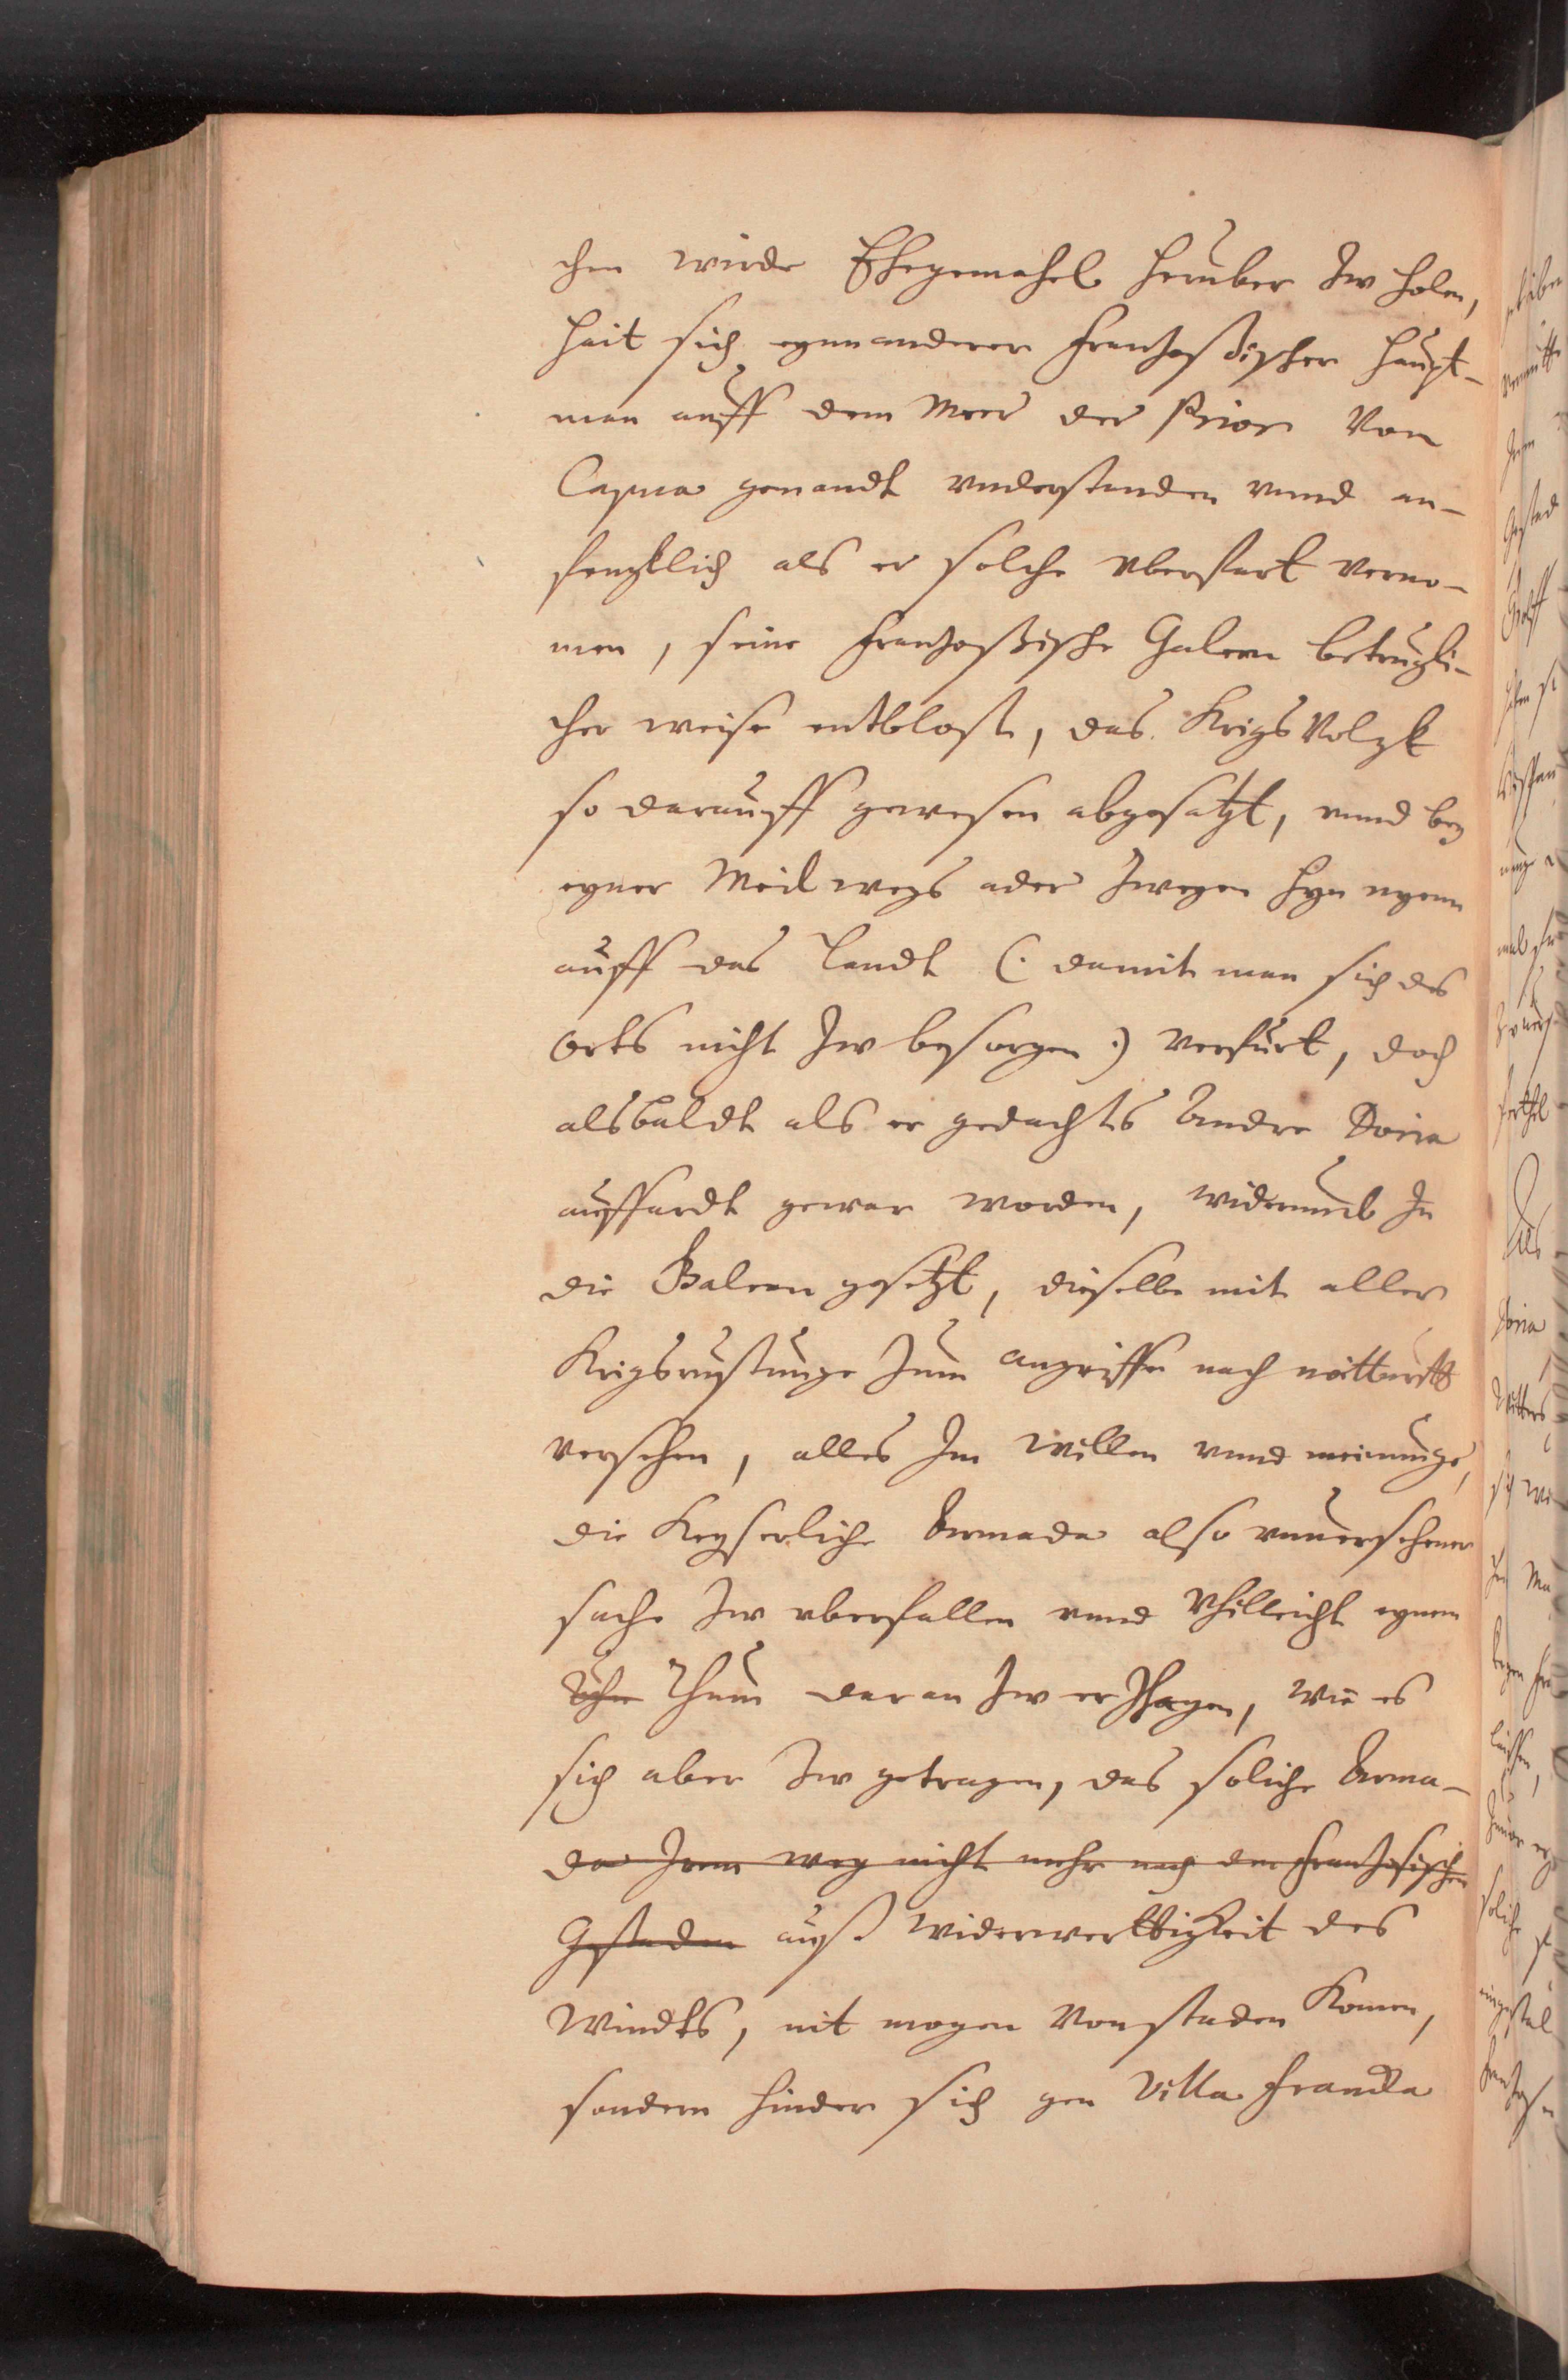 chen wirde Ehegemahel heruber Zw holen,
hait sich eynn anderer frantzoßischer haupt-
man auff dem Meer der Prior von
Capua genandt vnderstanden vnnd an-
fengklich als er solche vberfart verno-
men, seine frantzoßische Galeen betrugli-
cher weise entblost, das KrigsVolgk
so darauff gewesen abgesatzt, vnnd bey
eyner Meil wegs ader Zweyen hyn nyenn
auff das Landt (: damit man sich des
Orts nicht Zw besorgen :) verfurt, doch
alsbaldt als er gedachts Andre Doria
auffardt gewar worden, widerumb In
die Galeen gesetzt, dieselbe mit aller
Krigsrustunge Zum angriffe nach notturfft
versehen, alles Im willen vnnd meinunge,
die Keyserliche Armada also vnuersehener
sache Zw vberfallen vnnd Vhilleicht eynen
Rhum daran Zw erJhagen, wie es
sich aber Zw getragen, das soliche Arma-
da Iren weg nicht mehr nach den frantzosischen
Gestaden auß widerwerttigkeit des
Windts, nit mogen Von staden Komen,
sondern hinder sich gen Villa francka